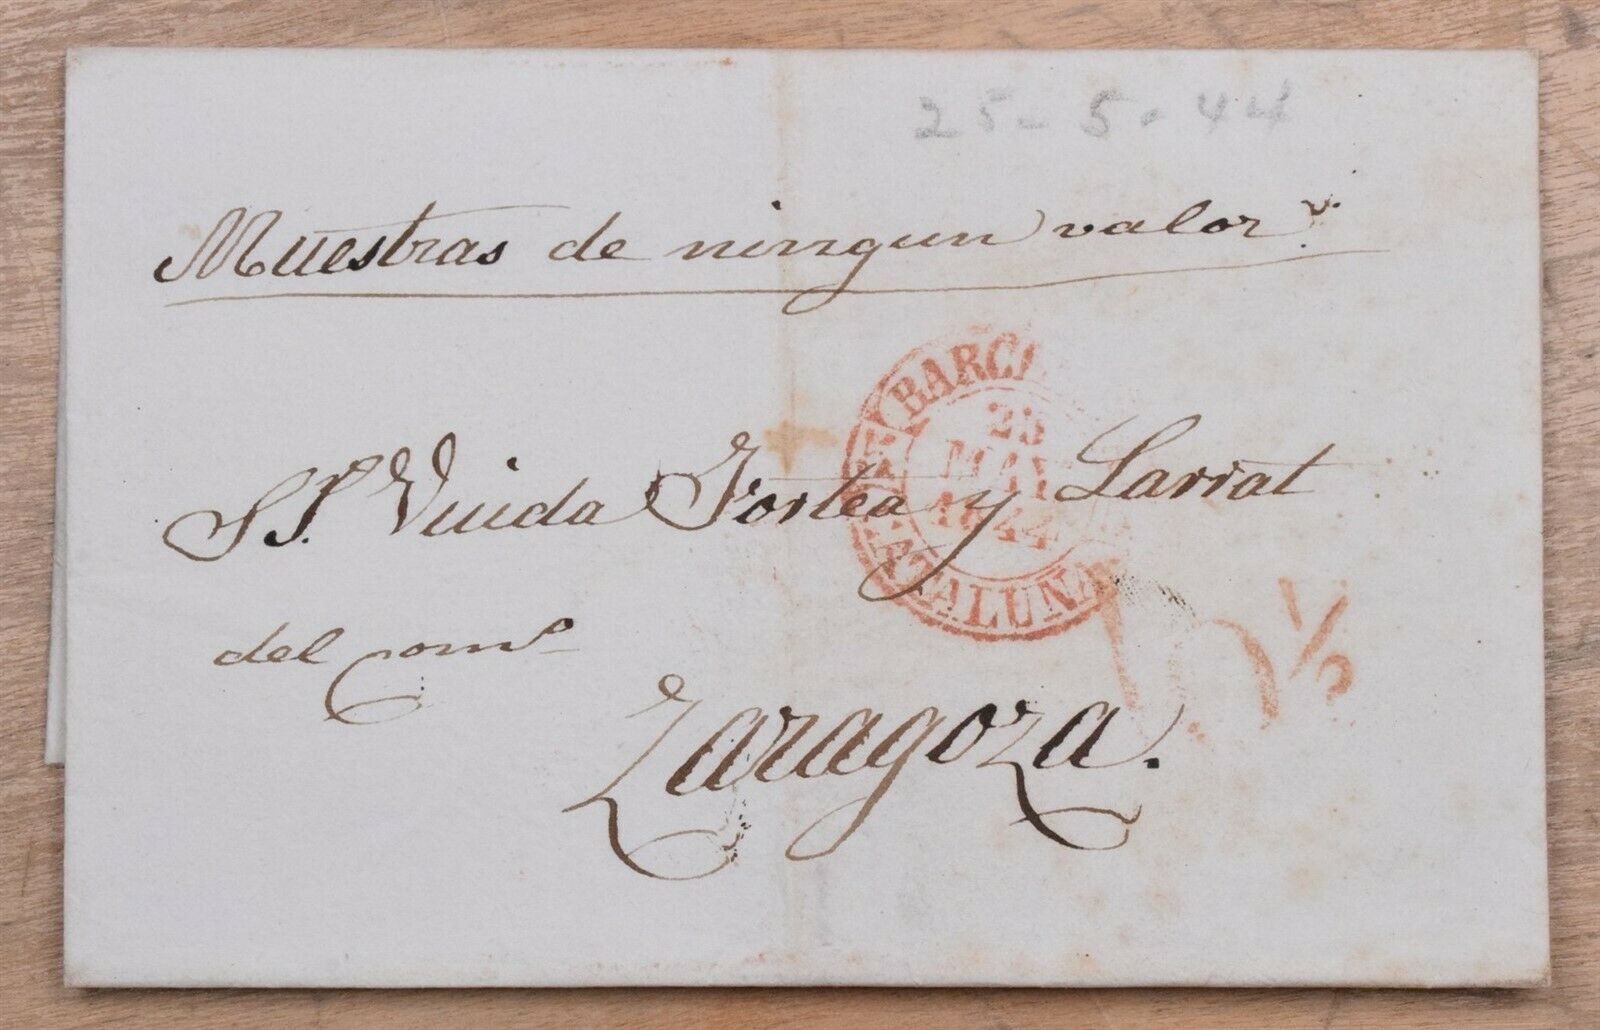 25-5-44
Muestras de ningun valor.
BARCE
25
MAY
1844
CATALUÑA
SS. Viuda Fortea y Larrat
del comº
Zaragoza.